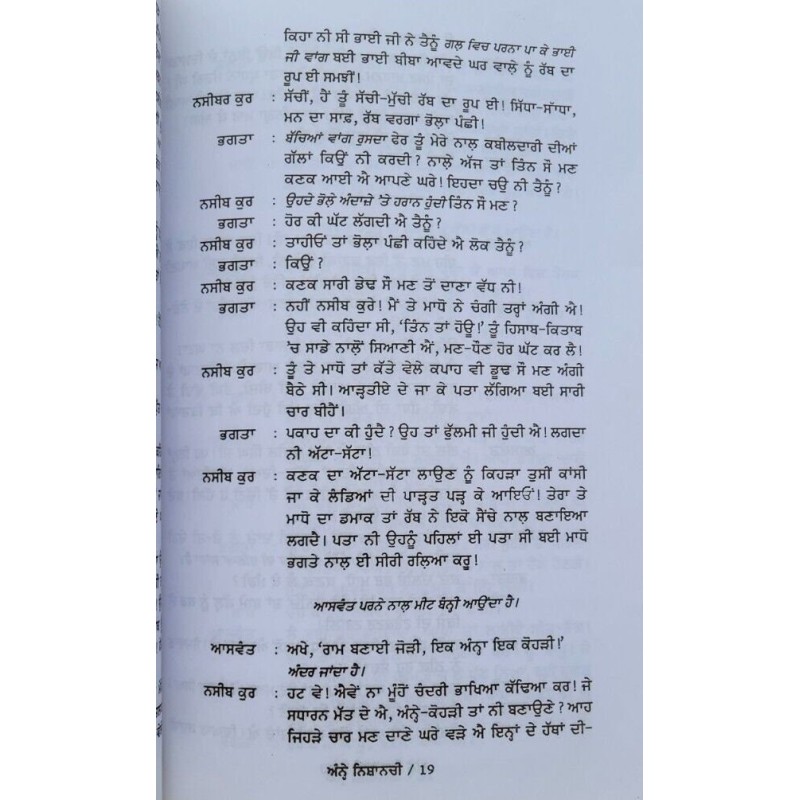 ਕਿਹਾ ਨੀ ਸੀ ਭਾਈ ਜੀ ਨੇ ਤੈਨੂੰ ਗਲ ਵਿਚ ਪਰਨਾ ਪਾ ਕੇ ਭਾਈ
ਜੀ ਵਾਂਗ ਬਈ ਭਾਈ ਬੀਬਾ ਆਵਦੇ ਘਰ ਵਾਲੇ ਨੂੰ ਰੱਬ ਦਾ
ਰੂਪ ਈ ਸਮਝੀਂ!
ਨਸੀਬਰ ਕੁਰ : ਸੱਚੀਂ, ਹੈਂ ਤੂੰ ਸੱਚੀ-ਮੁੱਚੀ ਰੱਬ ਦਾ ਰੂਪ ਈ! ਸਿੱਧਾ-ਸਾੱਧਾ,
ਮਨ ਦਾ ਸਾਫ਼, ਰੱਬ ਵਰਗਾਂ ਭੋਲਾ ਪੰਛੀ!
ਭਗਤਾ : ਬੱਚਿਆਂ ਵਾਂਗ ਰੁਸਦਾ ਫੇਰ ਤੂੰ ਮੇਰੇ ਨਾਲ਼ ਕਬੀਲਦਾਰੀ ਦੀਆਂ
ਗੱਲਾਂ ਕਿਉਂ ਨੀ ਕਰਦੀ? ਨਾਲ਼ੇ ਅੱਜ ਤਾਂ ਤਿੰਨ ਸੌ ਮਣ
ਕਣਕ ਆਈ ਐ ਆਪਣੇ ਘਰੇ! ਇਹਦਾ ਚਉ ਨੀ ਤੈਨੂੰ?
ਨਸੀਬ ਕੁਰ : ਉਹਦੇ ਭੋਲ਼ੇ ਅੰਦਾਜ਼ੇ 'ਤੇ ਹਰਾਨ ਹੁੰਦੀ ਤਿੰਨ ਸੌ ਮਣ?
ਭਗਤਾ : ਹੋਰ ਕੀ ਘੱਟ ਲੱਗਦੀ ਐ ਤੈਨੂੰ?
ਨਸੀਬ ਕੁਰ : ਤਾਹੀਓਂ ਤਾਂ ਭੋਲਾ ਪੰਛੀ ਕਹਿੰਦੇ ਐ ਲੋਕ ਤੈਨੂੰ?
ਭਗਤਾ : ਕਿਉਂ?
ਨਸੀਬ ਕੁਰ : ਕਣਕ ਸਾਰੀ ਡੇਢ ਸੌ ਮਣ ਤੋਂ ਦਾਣਾ ਵੱਧ ਨੀ!
ਭਗਤਾ : ਨਹੀਂ ਨਸੀਬ ਕੁਰੇ! ਮੈਂ ਤੇ ਮਾਧੋ ਨੇ ਚੰਗੀ ਤਰ੍ਹਾਂ ਅੰਗੀ ਐ!
ਉਹ ਵੀ ਕਹਿੰਦਾ ਸੀ, 'ਤਿੰਨ ਤਾਂ ਹੋਊ!' ਤੂੰ ਹਿਸਾਬ-ਕਿਤਾਬ
'ਚ ਸਾਡੇ ਨਾਲੋਂ ਸਿਆਣੀ ਐਂ, ਮਣ-ਧੌਣ ਹੋਰ ਘੱਟ ਕਰ ਲੈ!
ਨਸੀਬ ਕੁਰ : ਤੂੰ ਤੇ ਮਾਧੋ ਤਾਂ ਕੱਤੇ ਵੇਲੇ ਕਪਾਹ ਵੀ ਡੂਢ ਸੌ ਮਣ ਅੰਗੀ
ਬੈਠੇ ਸੀ। ਆੜ੍ਹਤੀਏ ਦੇ ਜਾ ਕੇ ਪਤਾ ਲੱਗਿਆ ਬਈ ਸਾਰੀ
ਚਾਰ ਬੀਹੈਂ।
ਭਗਤਾ : ਪਕਾਹ ਦਾ ਕੀ ਹੁੰਦੈ? ਉਹ ਤਾਂ ਫੁੱਲਮੀ ਜੀ ਹੁੰਦੀ ਐ! ਲਗਦਾ
ਨੀ ਅੱਟਾ-ਸੱਟਾ!
ਨਸੀਬ ਕੁਰ : ਕਣਕ ਦਾ ਅੱਟਾ-ਸੱਟਾ ਲਾਉਣ ਨੂੰ ਕਿਹੜਾ ਤੁਸੀਂ ਕਾਂਸੀ
ਜਾ ਕੇ ਲੰਡਿਆਂ ਦੀ ਪਾੜ੍ਹਤ ਪੜ੍ਹ ਕੇ ਆਇਓਂ! ਤੇਰਾ ਤੇ
ਮਾਧੋ ਦਾ ਡਮਾਕ ਤਾਂ ਰੱਬ ਨੇ ਇਕੋ ਸੈਂਚੇ ਨਾਲ਼ ਬਣਾਇਆ
ਲਗਦੈ। ਪਤਾ ਨੀ ਉਹਨੂੰ ਪਹਿਲਾਂ ਈ ਪਤਾ ਸੀ ਬਈ ਮਾਧੋ
ਭਗਤੇ ਨਾਲ਼ ਈ ਸੀਰੀ ਰਲ਼ਿਆ ਕਰੂ!
ਆਸਵੰਤ ਪਰਨੇ ਨਾਲ਼ ਮੀਟ ਬੰਨ੍ਹੀ ਆਉਂਦਾ ਹੈ।
ਆਸਵੰਤ : ਅਖੇ, 'ਰਾਮ ਬਣਾਈ ਜੋੜੀ, ਇਕ ਅੰਨ੍ਹਾ ਇਕ ਕੋਹੜੀ!'
ਅੰਦਰ ਜਾਂਦਾ ਹੈ।
ਨਸੀਬ ਕੁਰ : ਹਟ ਵੇ! ਐਵੇਂ ਨਾ ਮੂੰਹੋਂ ਚੰਦਰੀ ਭਾਖਿਆ ਕੱਢਿਆ ਕਰ! ਜੇ
ਸਧਾਰਨ ਮੱਤ ਦੇ ਐ, ਅੰਨ੍ਹੇ-ਕੋਹੜੀ ਤਾਂ ਨੀ ਬਣਾਉਣੇ? ਆਹ
ਜਿਹੜੇ ਚਾਰ ਮਣ ਦਾਣੇ ਘਰੇ ਵੜੇ ਐ ਇਨ੍ਹਾਂ ਦੇ ਹੱਥਾਂ ਦੀ-
ਅੰਨ੍ਹੇ ਨਿਸ਼ਾਨਚੀ / 19